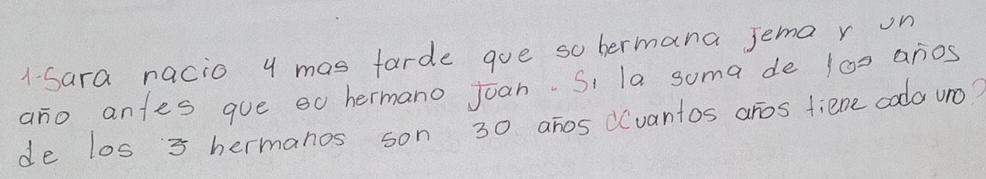 1-Sara nacio 4 mas tarde que su hermana Jema y un
año antes que su hermano Juan. Si la suma de los años
de los 3 hermanos son 30 años ¿Cuantos años tiene cada uno?